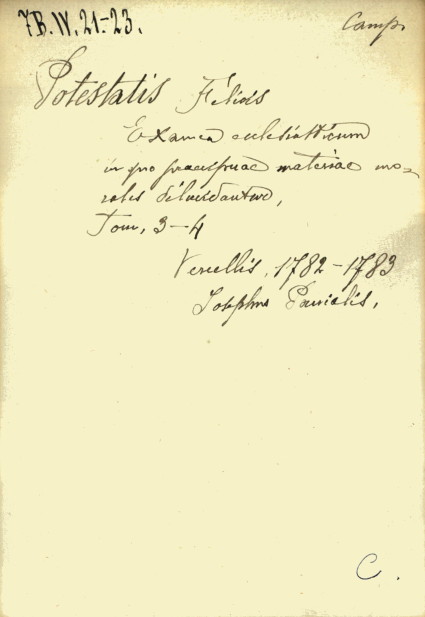 7B.W.21-23.
Camp.
Potestatis Felicis
Examen ecclesiasticum
in quo praecipuae materiae mo-
rales dilucidantur,
Tom. 3-4
Vercellis, 1782-1783
Josephus Panialis,
C.